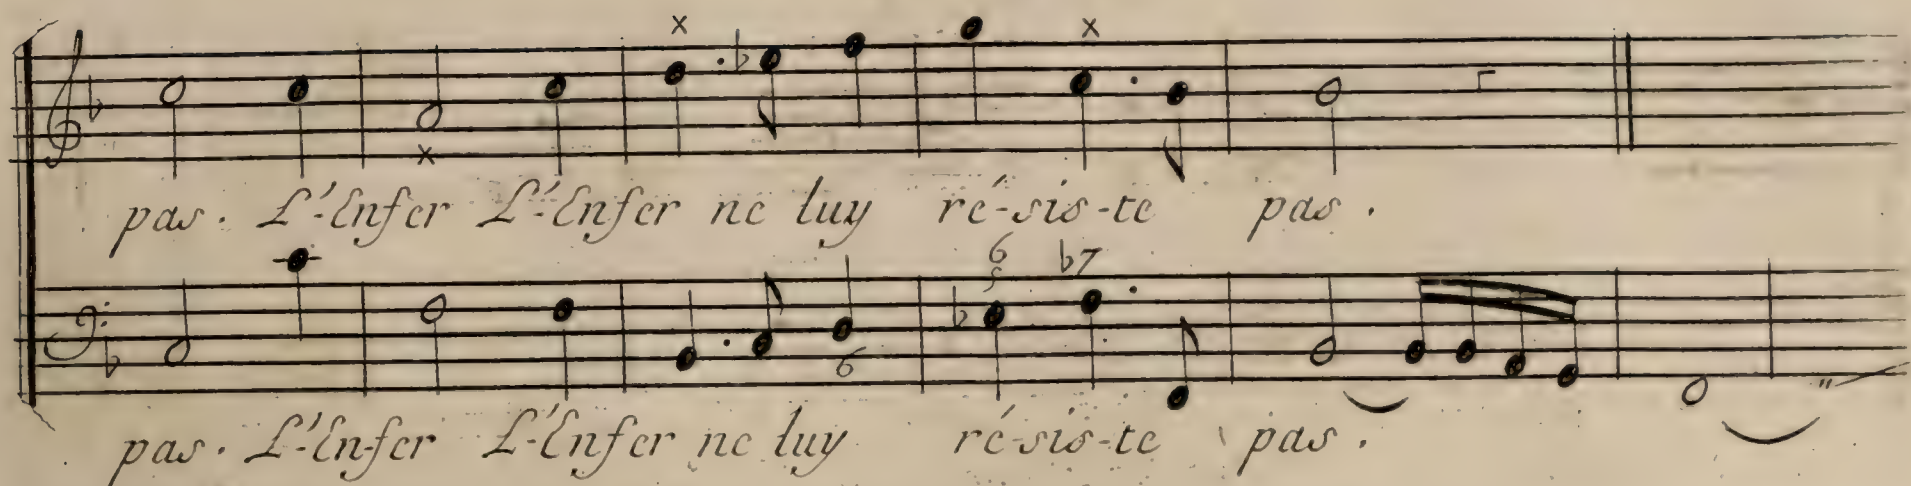 pas. L'-Enfer L'-Enfer ne luy ré-sis-te pas.
6 ♭7
6
pas. L'-En-fer L'-Enfer ne luy ré-sis-te pas.